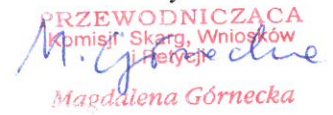 PRZEWODNICZĄCA
Komisji Skarg, Wniosków
i Petycji
M. Górnecka
Magdalena Górnecka